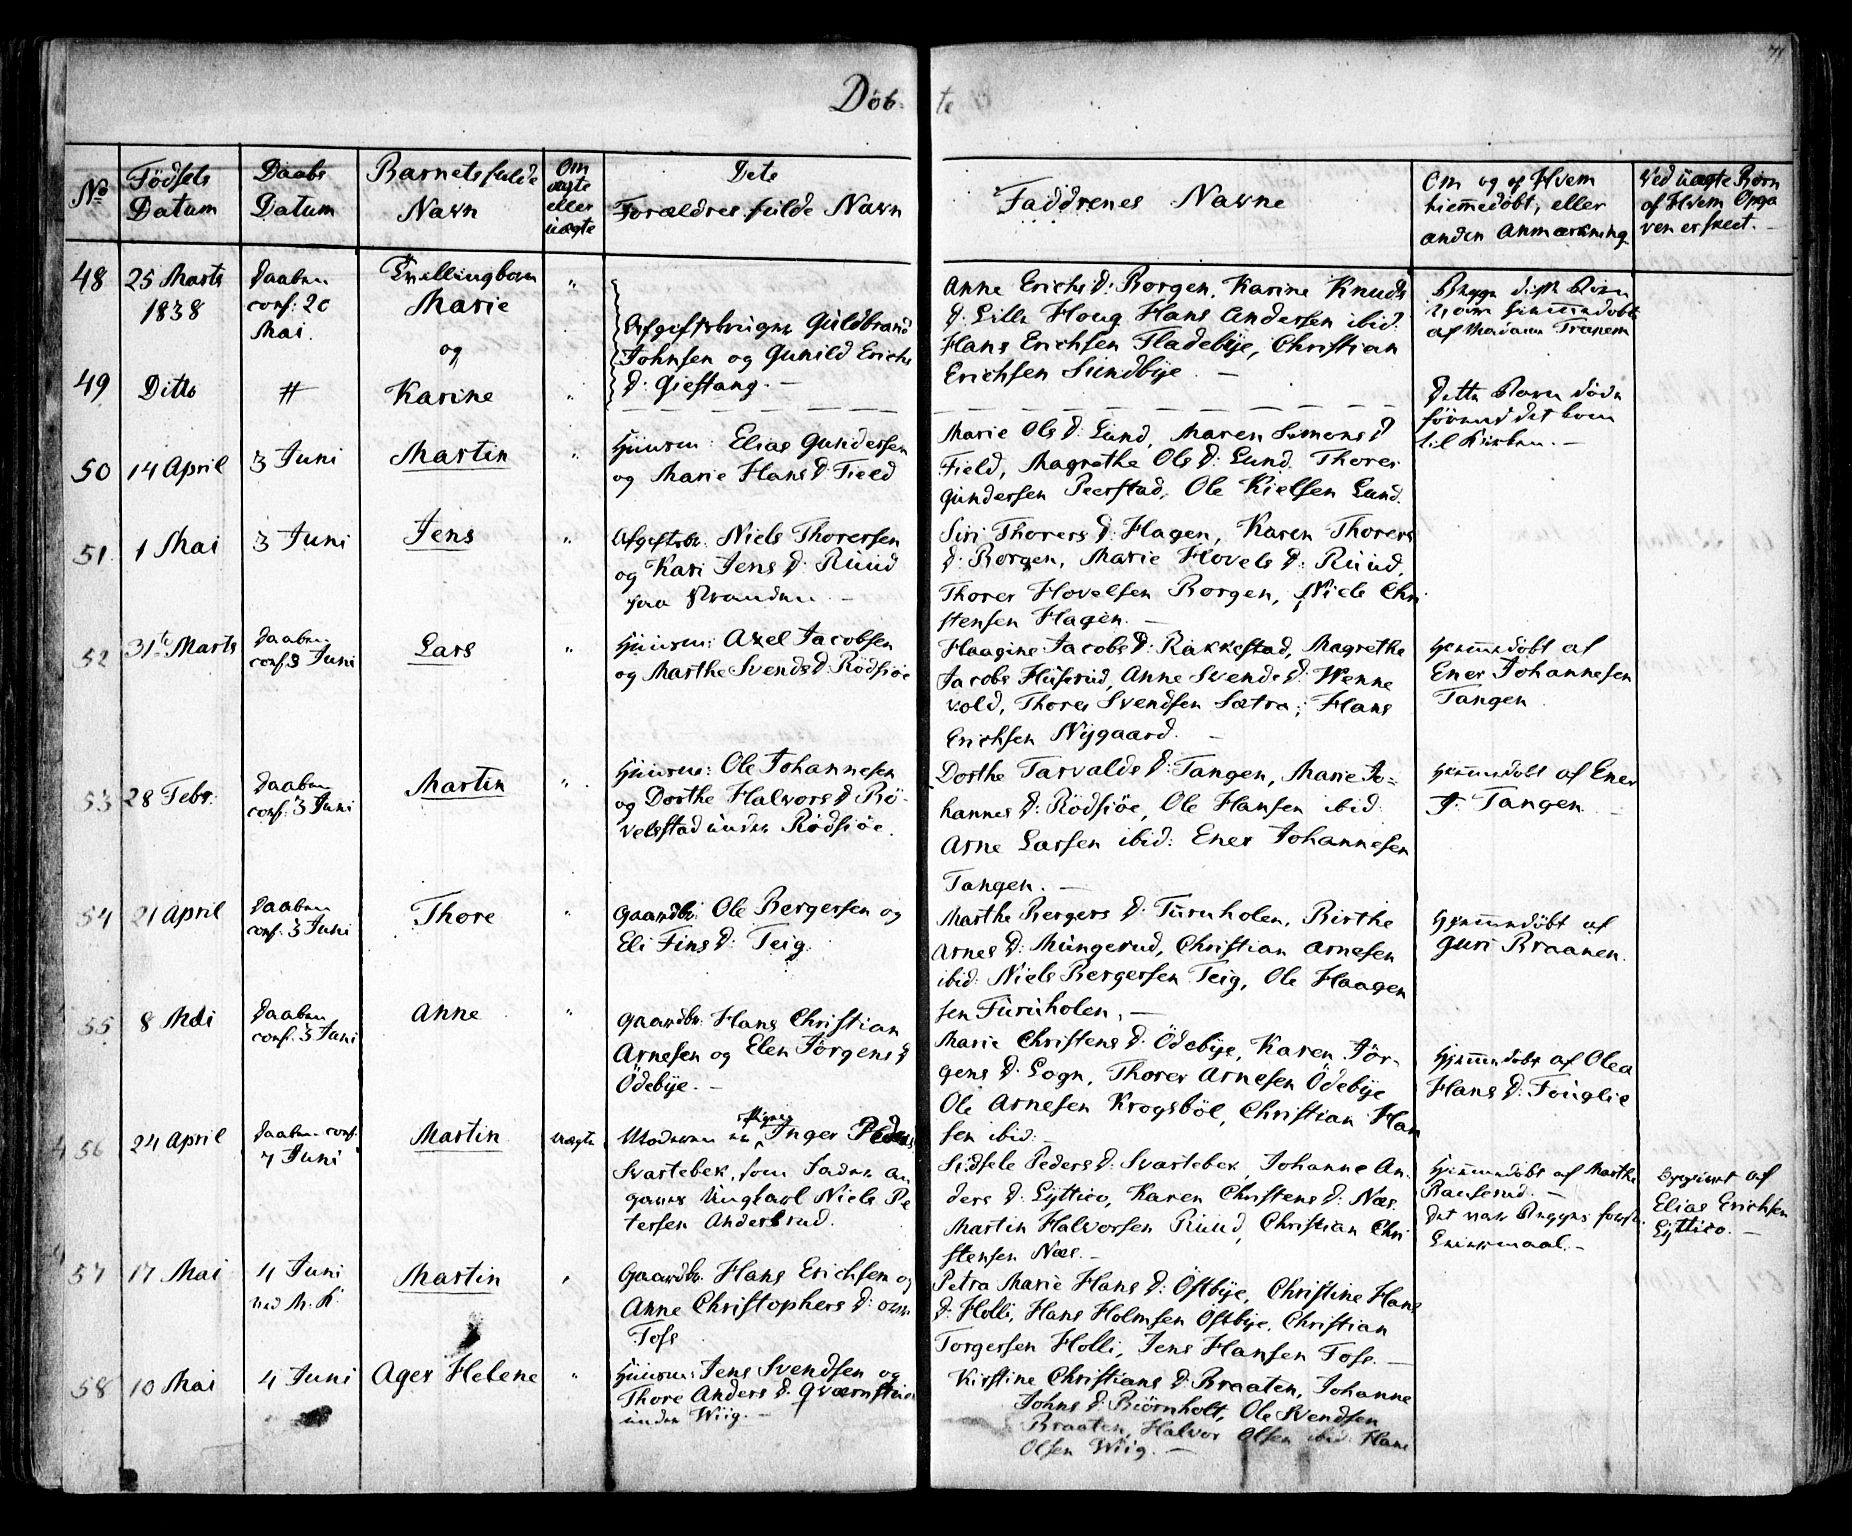 71
Döb- te
No
Födsels
Datum
Daabs
Datum
Barnets fulde
Navn
Om
ægte
eller
uægte
Dets
Forældres fulde Navn
Faddrenes Navne
Om og af Hvem
hiemmedöbt, eller
anden Anmærkning
Ved uægte Börn
af Hvem Opga
ven er skeet. -
48
25 Marts
1838
Daaben
conf: 20
Mai.
Tvillingborn
Marie
og
"
Afgiftsbruger Guldbrand
Johnsen og Gunild Erichs
D: Giestang. -
Anne Erichs D: Borgen, Karine Knuds
D: Lille Houg Hans Andersen ibid:
Hans Erichsen Fladebye, Christian
Erichsen Sundbye. -
Begge disse Börn
hjemmedöbt
af Madam Tranem
49
Ditto
#
Karine
"
Dette Barn döde
förend det kom
til Kirken. -
50
14 April
3 Juni
Martin
"
Huusm: Elias Gundersen
og Marie Hans D: Field
Marie Ols D: Lund, Maren Simens D
Field, Magrethe Ols D: Lund. Thorer
Gundersen Peerstad, Ole Kielsen Lund.
51.
1 Mai
3 Juni
Jens
"
Afgiftsbr: Niels Thorersen
og Kari Jens D: Ruud
paa Stranden -
Siri Thorers D: Hagen, Karen Thorers
D: Borgen, Marie Hovels D: Ruud,
Thorer Hovelsen Borgen, Niels Chri
stensen Hagen. -
52
31te Marts
Daaben
conf: 3 Juni
Lars
"
Huusm: Axel Jacobsen
og Marthe Svends D: Rödsiöe
Haagine Jacobs D: Rakkestad, Magrethe
Jacobs Huserud, Anne Svends D: Wenne
vold, Thorer Svendsen Sætra, Hans
Erichsen Nygaard. -
Hjemmedöbt af
Ener Johannesen
Tangen
53
28 Febr.
Daaben
conf: 3 Juni
Martin
"
Huusm: Ole Johannesen
og Dorthe Halvors D Rö-
velsstad under Rödsiöe.
Dorthe Tarvalds D: Tangen, Marie Jo-
hannes D: Rödsiöe, Ole Hansen ibid:
Arne Larsen ibid: Ener Johannesen
Tangen. -
Hjemmedöbt af Ener
J: Tangen. -
54
21 April
Daaben
conf: 3 Juni
Thore
"
Gaardbr: Ole Bergersen og
Eli Fins D: Teig.
Marthe Bergers D: Furuholen, Birthe
Arnes D: Mungerud, Christian Arnesen
ibid: Niels Bergersen Teig, Ole Haagen
sen Furuholen, -
Hjemmedöbt af
Guri Braanen.
55
8 Mai
Daaben
conf: 3 Juni
Anne
"
Gaardbr: Hans Christian
Arnesen og Elen Jörgens D
Ödebye. -
Marie Christens D: Ödebye, Karen Jör-
gens D: Sogn, Thorer Arnesen Ödebye
Ole Arnesen Krogsböl, Christian Han
sen ibid: -
Hjemmedöbt af Olea
Hans D: Fouglie
56
24 April
Daaben conf:
4 Juni
Martin
uægte
Moderen er Pigen Inger Peders
Svartebek, som Fader an
gaves Ungkarl Niels Pe
tersen Andersrud.
Sidsele Peders D: Svartebek, Johanne An
ders D: Lyttico, Karen Christens D: Næs
Martin Halvorsen Ruud, Christian Chri
stensen Næs. -
Hjemmedöbt af Marthe
Rauserud. -
Det var Begges förste
Leiermaal. -
Opgivet af
Elias Erichsen
Lyttico. -
57
17 Mai
4 Juni
ved N. K.
Martin
"
Gaardbr. Hans Erichsen og
Anne Christophers D: övre
Foss
Petra Marie Hans D: Östbye, Christine Hans
D: Holli, Hans Holmsen Östbye. Christian
Torgersen Holli, Jens Hansen Foss. -
58
10 Mai
4 Juni
Ager Helene
"
Huusm: Jens Svendsen og
Thore Anders D: Qværnstuen
under Wiig. -
Kirstine Christians D: Braaten, Johanne
Johns D: Biörnholt, Ole Svendsen
Braaten, Halvor Olsen ibid: Hans
Olsen Wiig. -